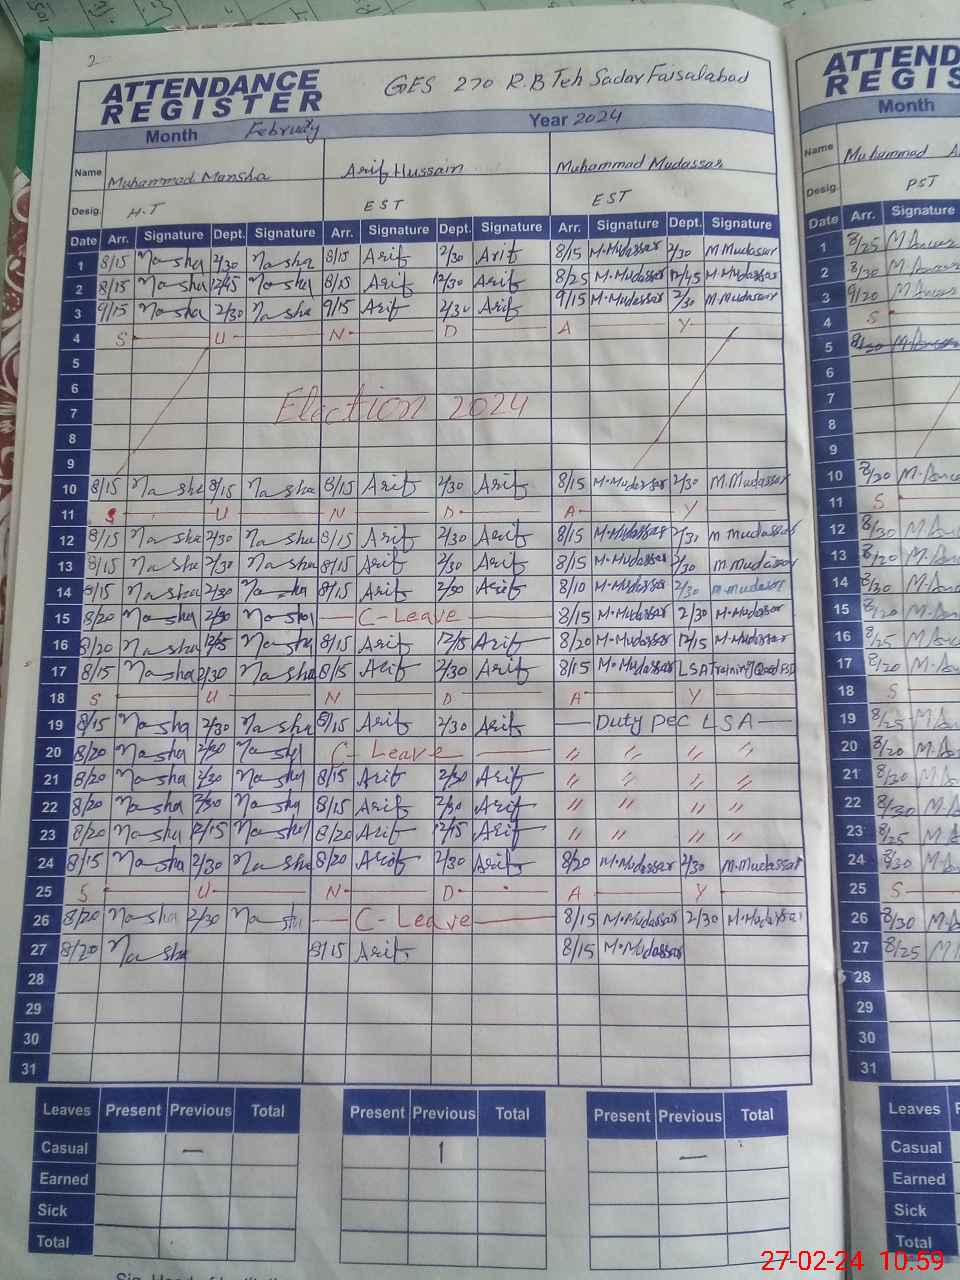 2
ATTENDANCE REGISTER GES 270 R.B Teh Sadar Faisalabad
Month February Year 2024
Name Muhammad Mansha Arif Hussain Muhammad Mudassar
Desig. H.T EST EST
Date Arr. Signature Dept. Signature Arr. Signature Dept. Signature Arr. Signature Dept. Signature
1 8/15 Mansha 2/30 Mansha 8/15 Arif 2/30 Arif 8/15 M.Mudassar 2/30 M.Mudassar
2 8/15 Mansha 12/45 Mansha 8/15 Arif 12/30 Arif 8/25 M.Mudassar 12/45 M.Mudassar
3 9/15 Mansha 2/30 Mansha 9/15 Arif 2/30 Arif 9/15 M.Mudassar 2/30 M.Mudassar
4 S U N D A Y
5
6
7 Election 2024
8
9
10 8/15 Mansha 8/15 Mansha 8/15 Arif 2/30 Arif 8/15 M.Mudassar 2/30 M.Mudassar
11 S U N D A Y
12 8/15 Mansha 2/30 Mansha 8/15 Arif 2/30 Arif 8/15 M.Mudassar 2/30 M Mudassar
13 8/15 Mansha 2/30 Mansha 8/15 Arif 2/30 Arif 8/15 M.Mudassar 2/30 M.Mudassar
14 8/15 Mansha 2/30 Mansha 8/15 Arif 2/30 Arif 8/10 M.Mudassar 2/30 M.Mudassar
15 8/20 Mansha 2/30 Mansha C-Leave 8/15 M.Mudassar 2/30 M.Mudassar
16 8/20 Mansha 12/15 Mansha 8/15 Arif 12/15 Arif 8/20 M.Mudassar 12/15 M.Mudassar
17 8/15 Mansha 2/30 Mansha 8/15 Arif 2/30 Arif 8/15 M.Mudassar LSA Training
18 S U N D A Y
19 8/15 Mansha 2/30 Mansha 8/15 Arif 2/30 Arif Duty PEC LSA
20 8/20 Mansha 2/30 Mansha C-Leave 〃 〃 〃 〃
21 8/20 Mansha 2/30 Mansha 8/15 Arif 2/30 Arif 〃 〃 〃 〃
22 8/20 Mansha 2/30 Mansha 8/15 Arif 2/30 Arif 〃 〃 〃 〃
23 8/20 Mansha 12/15 Mansha 8/20 Arif 12/15 Arif 〃 〃 〃 〃
24 8/15 Mansha 2/30 Mansha 8/20 Arif 2/30 Arif 8/20 M.Mudassar 2/30 M.Mudassar
25 S U N D A Y
26 8/20 Mansha 2/30 Mansha C-Leave 8/15 M.Mudassar 2/30 M.Mudassar
27 8/20 Mansha 8/15 Arif 8/15 M.Mudassar
28
29
30
31
Leaves Present Previous Total Present Previous Total Present Previous Total
Casual — 1 —
Earned
Sick
Total
ATTEND
REGIS
Month
Name Muhammad A
Desig. PST
Date Arr. Signature
1 8/25
2 8/30
3 9/20
4 S
5
6
7
8
9
10 8/20
11 S
12 8/30
13 8/20
14 8/30
15 8/20
16 8/25
17 8/20
18 S
19 8/25
20 8/20
21 8/20
22 8/30
23 8/25
24 8/30
25 S
26 8/30
27 8/25
28
29
30
31
Leaves
Casual
Earned
Sick
Total
27-02-24 10.59